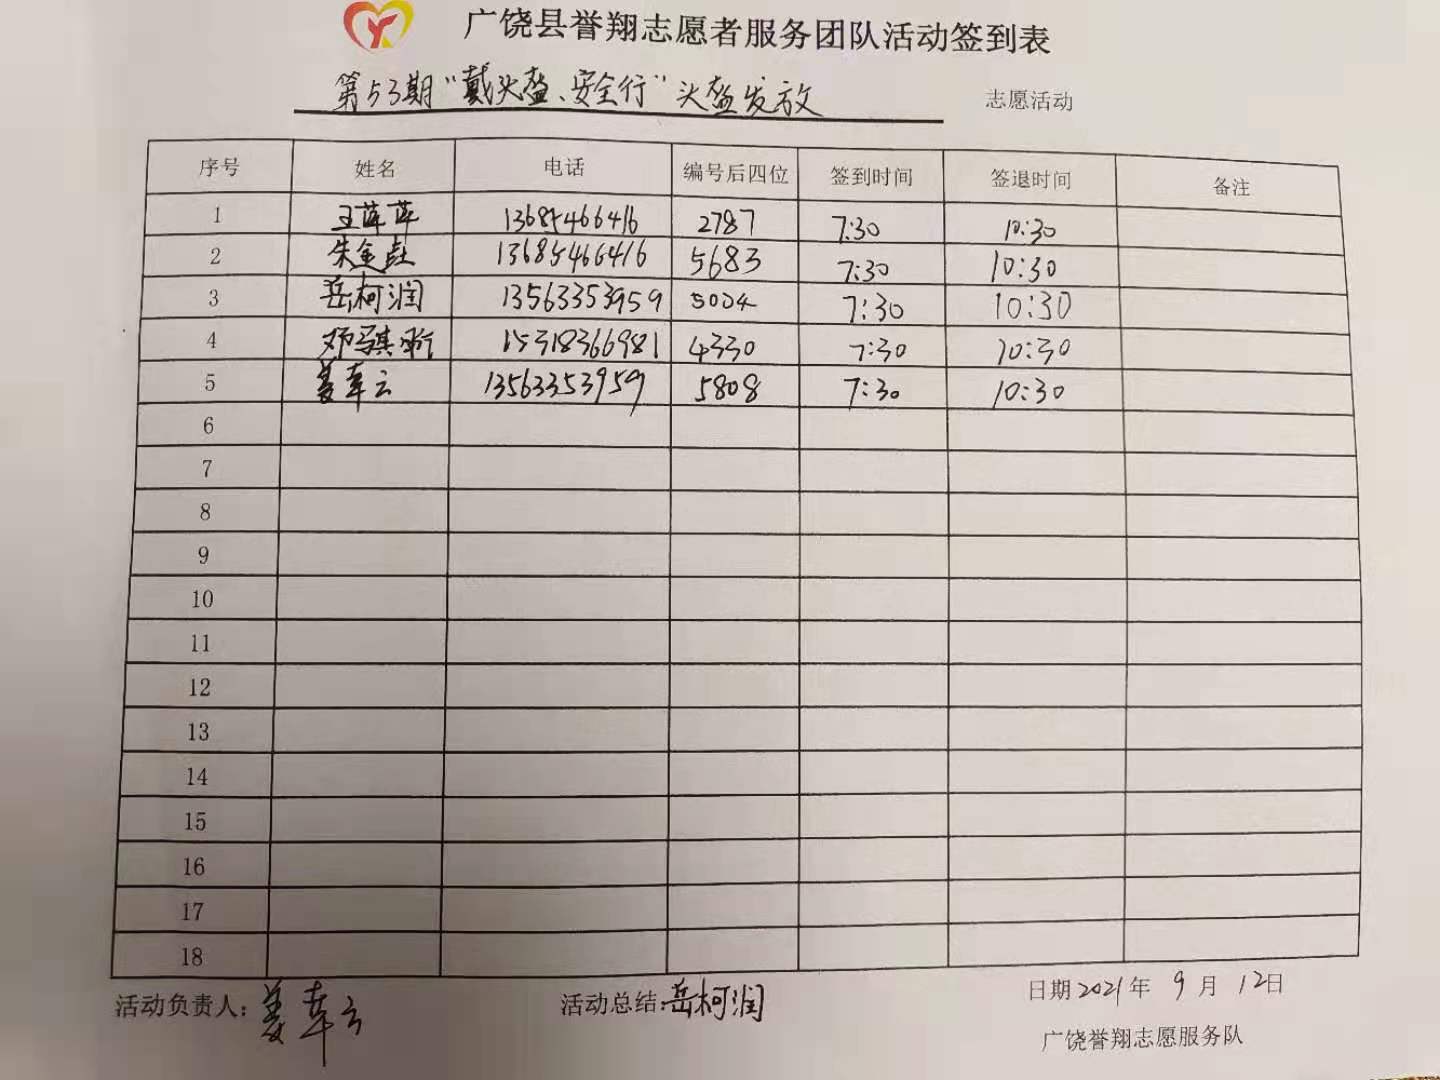 广饶县誉翔志愿者服务团队活动签到表
第53期“戴头盔、安全行”头盔发放 志愿活动
序号 姓名 电话 编号后四位 签到时间 签退时间 备注
1 王萍萍 13685466416 2787 7:30 10:30
2 朱金 13685466416 5683 7:30 10:30
3 岳柯润 13563353959 5004 7:30 10:30
4 邓骐 15318366981 4330 7:30 10:30
5 姜幸云 13563353959 5808 7:30 10:30
6
7
8
9
10
11
12
13
14
15
16
17
18
活动负责人：姜幸云 活动总结：岳柯润 日期2021年 9月 12日
广饶誉翔志愿服务队